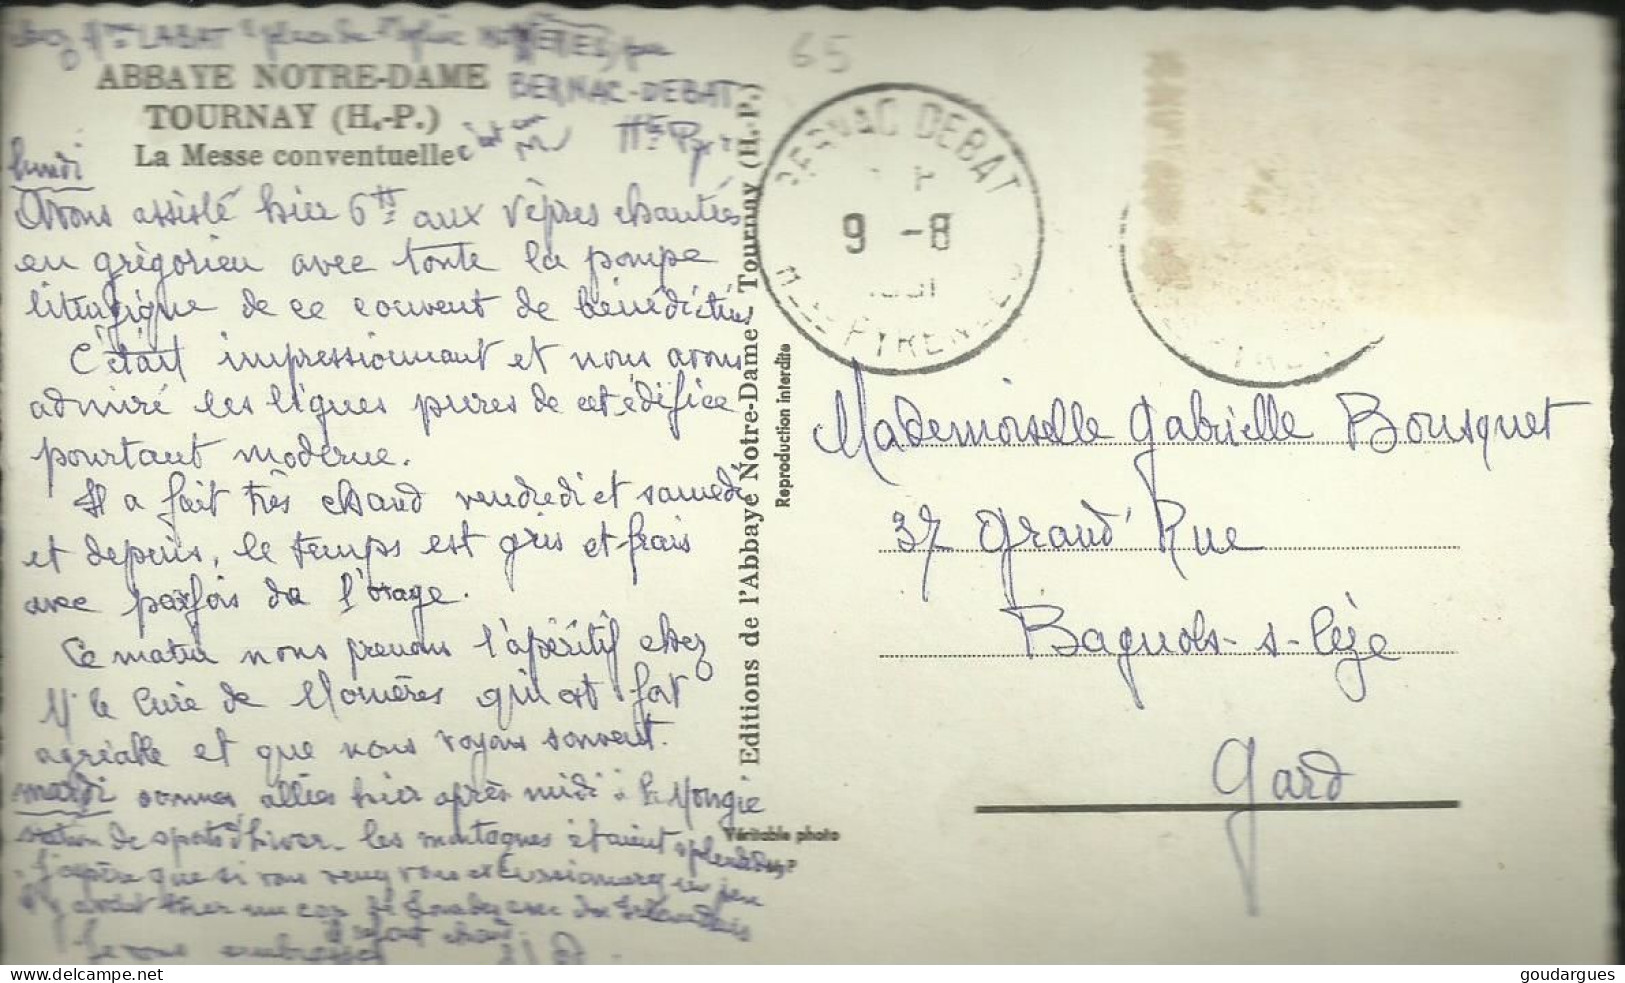 LABAT
MOMÈRES, par
ABBAYE NOTRE-DAME
BERNAC-DEBAT
TOURNAY (H.-P.)
Htes Pyr
La Messe conventuelle
lundi
Avons assisté hier 6 H aux Vèpres chantées
en grégorien avec toute la pompe
liturgique de ce couvent de bénédictins
C'était impressionnant et nous avons
admiré les lignes pures de cet édifice
pourtant moderne.
Il a fait très chaud vendredi et samedi
et depuis, le temps est gris et frais
avec parfois de l'orage.
Ce matin nous prenons l'apéritif chez
M. le Curé de Momères qui est fort
agréable et que nous voyons souvent.
mardi sommes allées hier après midi à la Mongie
station de sports d'hiver. les montagnes étaient splendides
J'espère que si vous venez vous excursionnerez un peu
Il y avait hier un car de Lourdes avec des Irlandais
il refait chaud.
Je vous embrasse
Editions de l'Abbaye Notre-Dame - Tournay (H.-P.)
Reproduction interdite
Véritable photo
65
BERNAC DEBAT
9 -8
PYRENEES
Mademoiselle Gabrielle Bousquet
37 Grand' Rue
Bagnols-s-Cèze
Gard
delcampe.net
goudargues